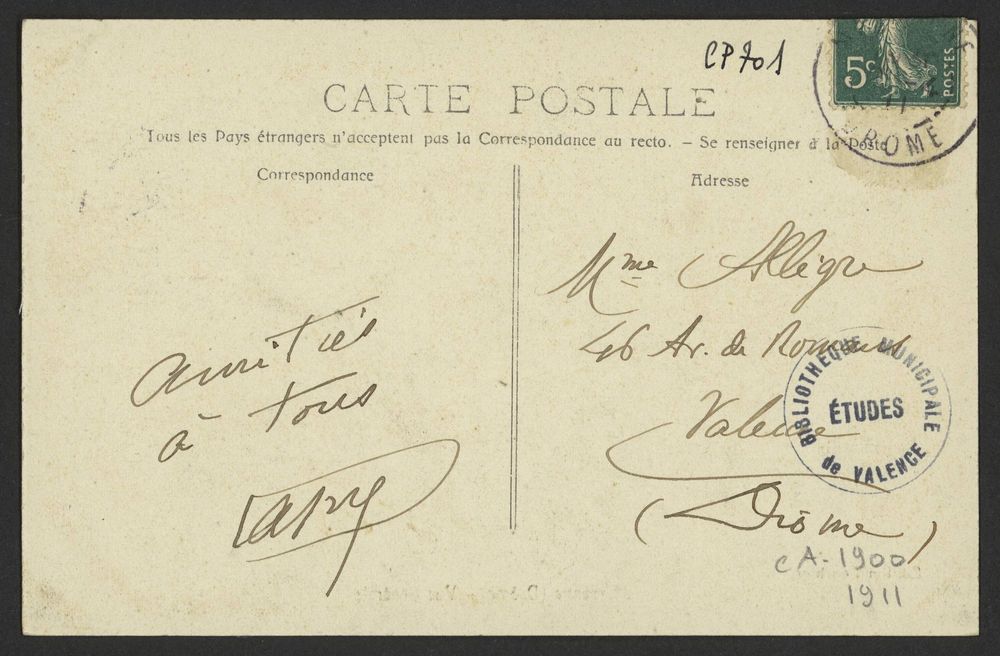 CP701
5c
POSTES
11
DROME
CARTE POSTALE
Tous les Pays étrangers n'acceptent pas la Correspondance au recto. – Se renseigner à la Poste
Correspondance
Adresse
amitiés
à tous
Mme Allègre
46 Av. de Romans
Valence
(Drôme)
BIBLIOTHÈQUE MUNICIPALE
ÉTUDES
de VALENCE
CA-1900
1911